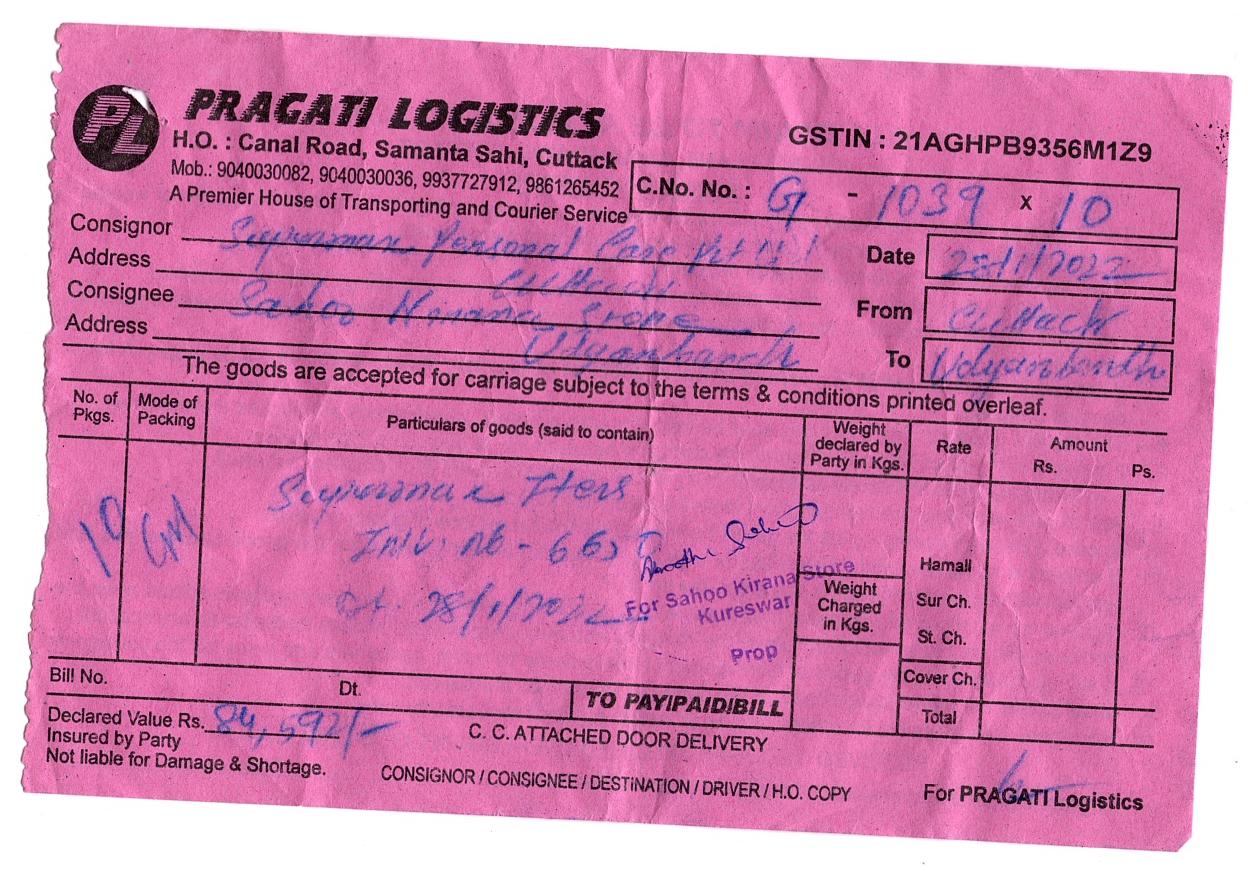 PL PRAGATI LOGISTICS
H.O. : Canal Road, Samanta Sahi, Cuttack
Mob.: 9040030082, 9040030036, 9937727912, 9861265452
A Premier House of Transporting and Courier Service
GSTIN : 21AGHPB9356M1Z9
C.No. No. : G - 1039 x 10
Consignor Supermax Personal Care Pvt Ltd
Address Cuttack
Date 28/1/2022
Consignee Sahoo Kirana Store
From Cuttack
Address
To Udyanbandh
The goods are accepted for carriage subject to the terms & conditions printed overleaf.
No. of Pkgs. Mode of Packing Particulars of goods (said to contain) Weight declared by Party in Kgs. Rate Amount Rs. Ps.
10
Supermax Iters
Inv. no - 
dt. 28/1/2022
For Sahoo Kirana Store
Kureswar
Prop
Weight Charged in Kgs.
Hamali
Sur Ch.
St. Ch.
Cover Ch.
Total
Bill No. Dt. TO PAY/PAID/BILL
Declared Value Rs. 84,592/-
Insured by Party
Not liable for Damage & Shortage.
C. C. ATTACHED DOOR DELIVERY
CONSIGNOR / CONSIGNEE / DESTINATION / DRIVER / H.O. COPY
For PRAGATI Logistics